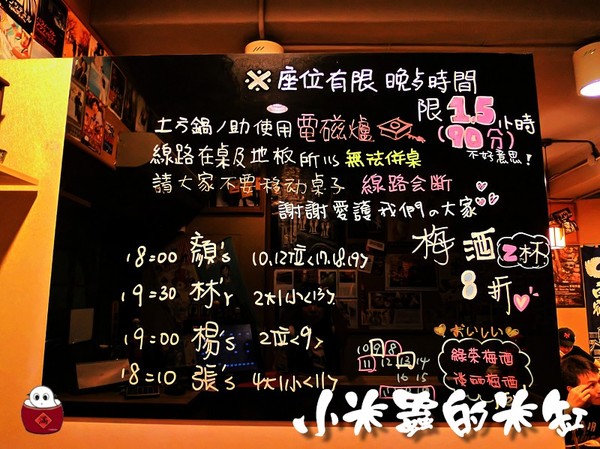 ※座位有限 晚上時間
限1.5小時
(90分)
不好意思!
土方鍋ノ助使用電磁爐
線路在桌及地板所以無法併桌
請大家不要移动桌子 線路会断
謝謝愛護我們の大家
梅酒 2杯
8折
18:00 顏's 10.12位<17.18.19>
19:30 林's 2大1小<13>
19:00 楊's 2位<9>
18:10 張's 4大1小<11>
おいしい
綠茶梅酒
淡麗梅酒
10 9 8
11 12 13 14
16 15
小米蟲的米缸